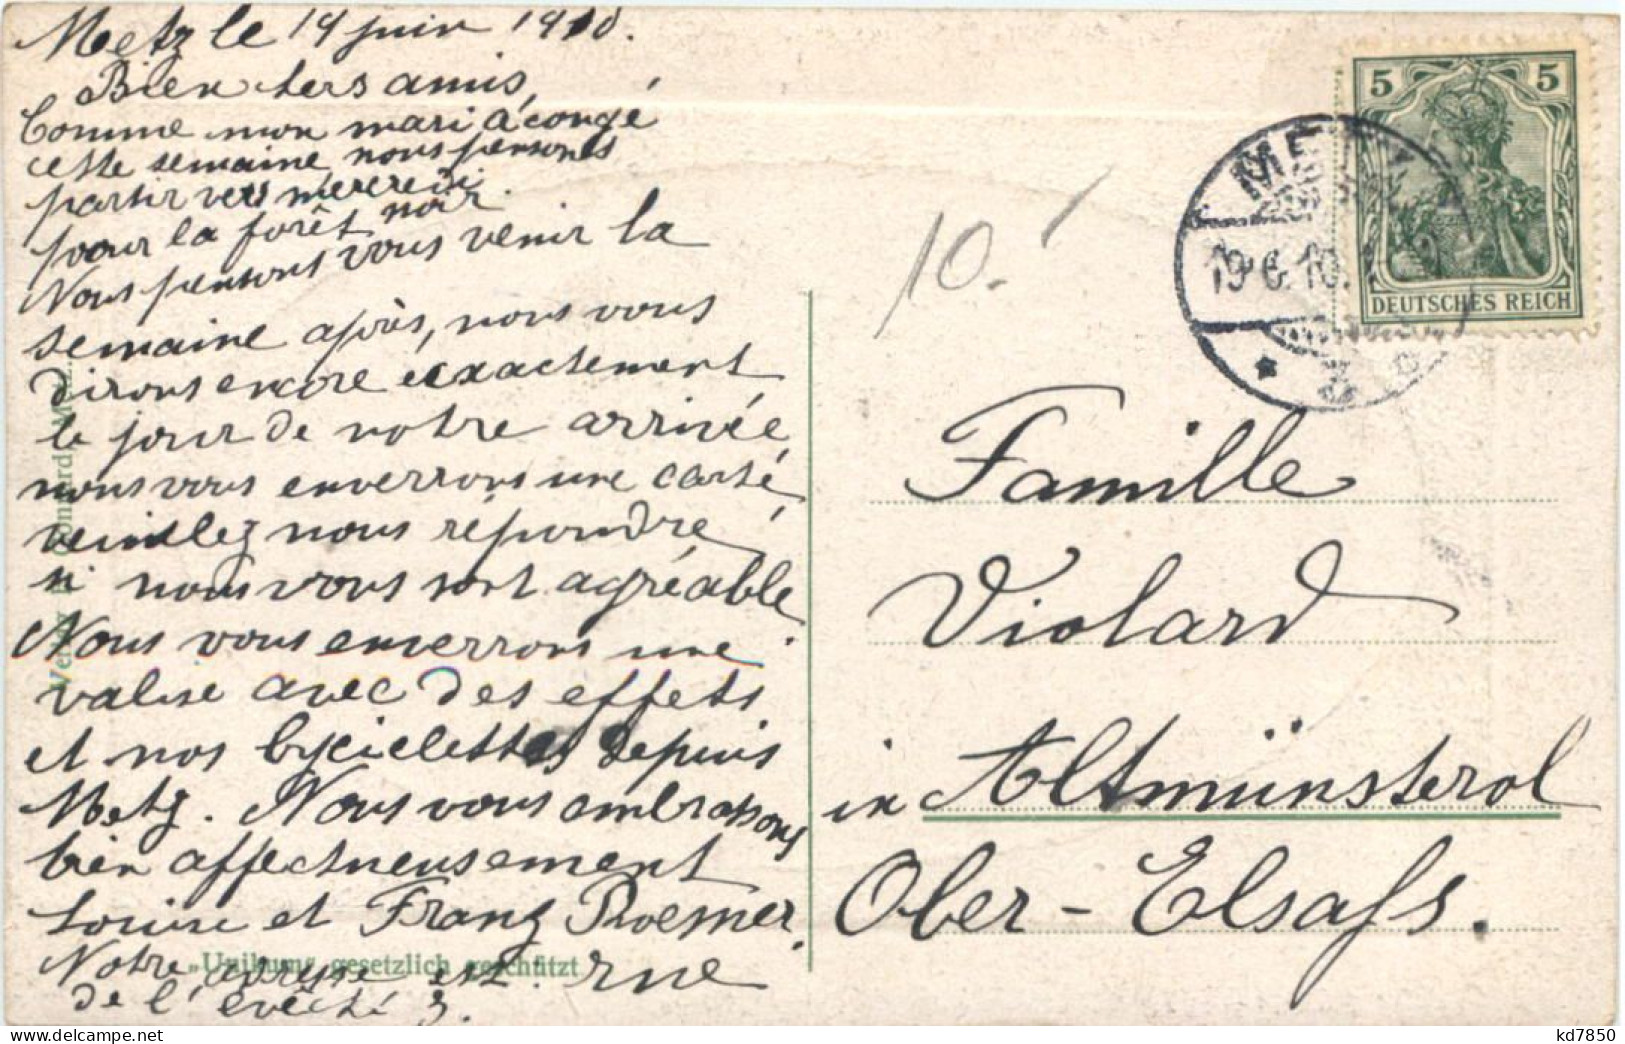 Metz le 19 juin 1910.
Bien chers amis,
Comme mon mari à congé
cette semaine nous pensons
partir vers mercredi
pour la forêt noir.
Nous pensons vous venir la
semaine après, nous vous
dirons encore exactement
le jour de notre arrivée,
nous vous enverrons une carte,
veuillez nous répondre,
si nous vous sont agréable.
Nous vous enverrons une
valise avec des effets
et nos byciclettes depuis
Metz. Nous vous embrassons
bien affectueusement
Louise et Franz Roemer.
Notre adresse est rue
de l'évêché 3.
„Unikum“ gesetzlich geschützt
10.-
METZ
19.6.10.
5 5
DEUTSCHES REICH
Famille
Violard
in Altmünsterol
Ober-Elsaß.
kd7850